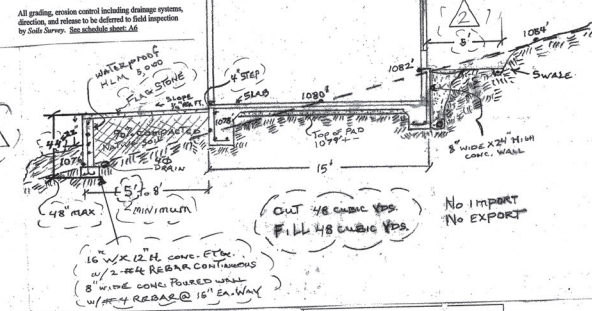 All grading, erosion control including drainage systems,
direction, and release to be deferred to field inspection
by Soils Survey. See schedule sheet: A6
2
5'
1084'
1082'
SWALE
WATERPROOF
HLM 5,000
FLAG STONE
SLOPE
4" STEP
SLAB
1080⁸
1078'
TOP OF PAD
1079'
90% COMPACTED
NATIVE SOIL
44"
22"
1074
4Ø
DRAIN
8" WIDE X 24" HIGH
CONC. WALL
48" MAX
5' TO 8'
MINIMUM
15'
CUT 48 CUBIC YDS.
FILL 48 CUBIC YDS.
NO IMPORT
NO EXPORT
16" W X 12" H CONC. FTG.
W/ 2-#4 REBAR CONTINUOUS
8" WIDE CONC. POURED WALL
W/ #4 REBAR @ 16" EA. WAY